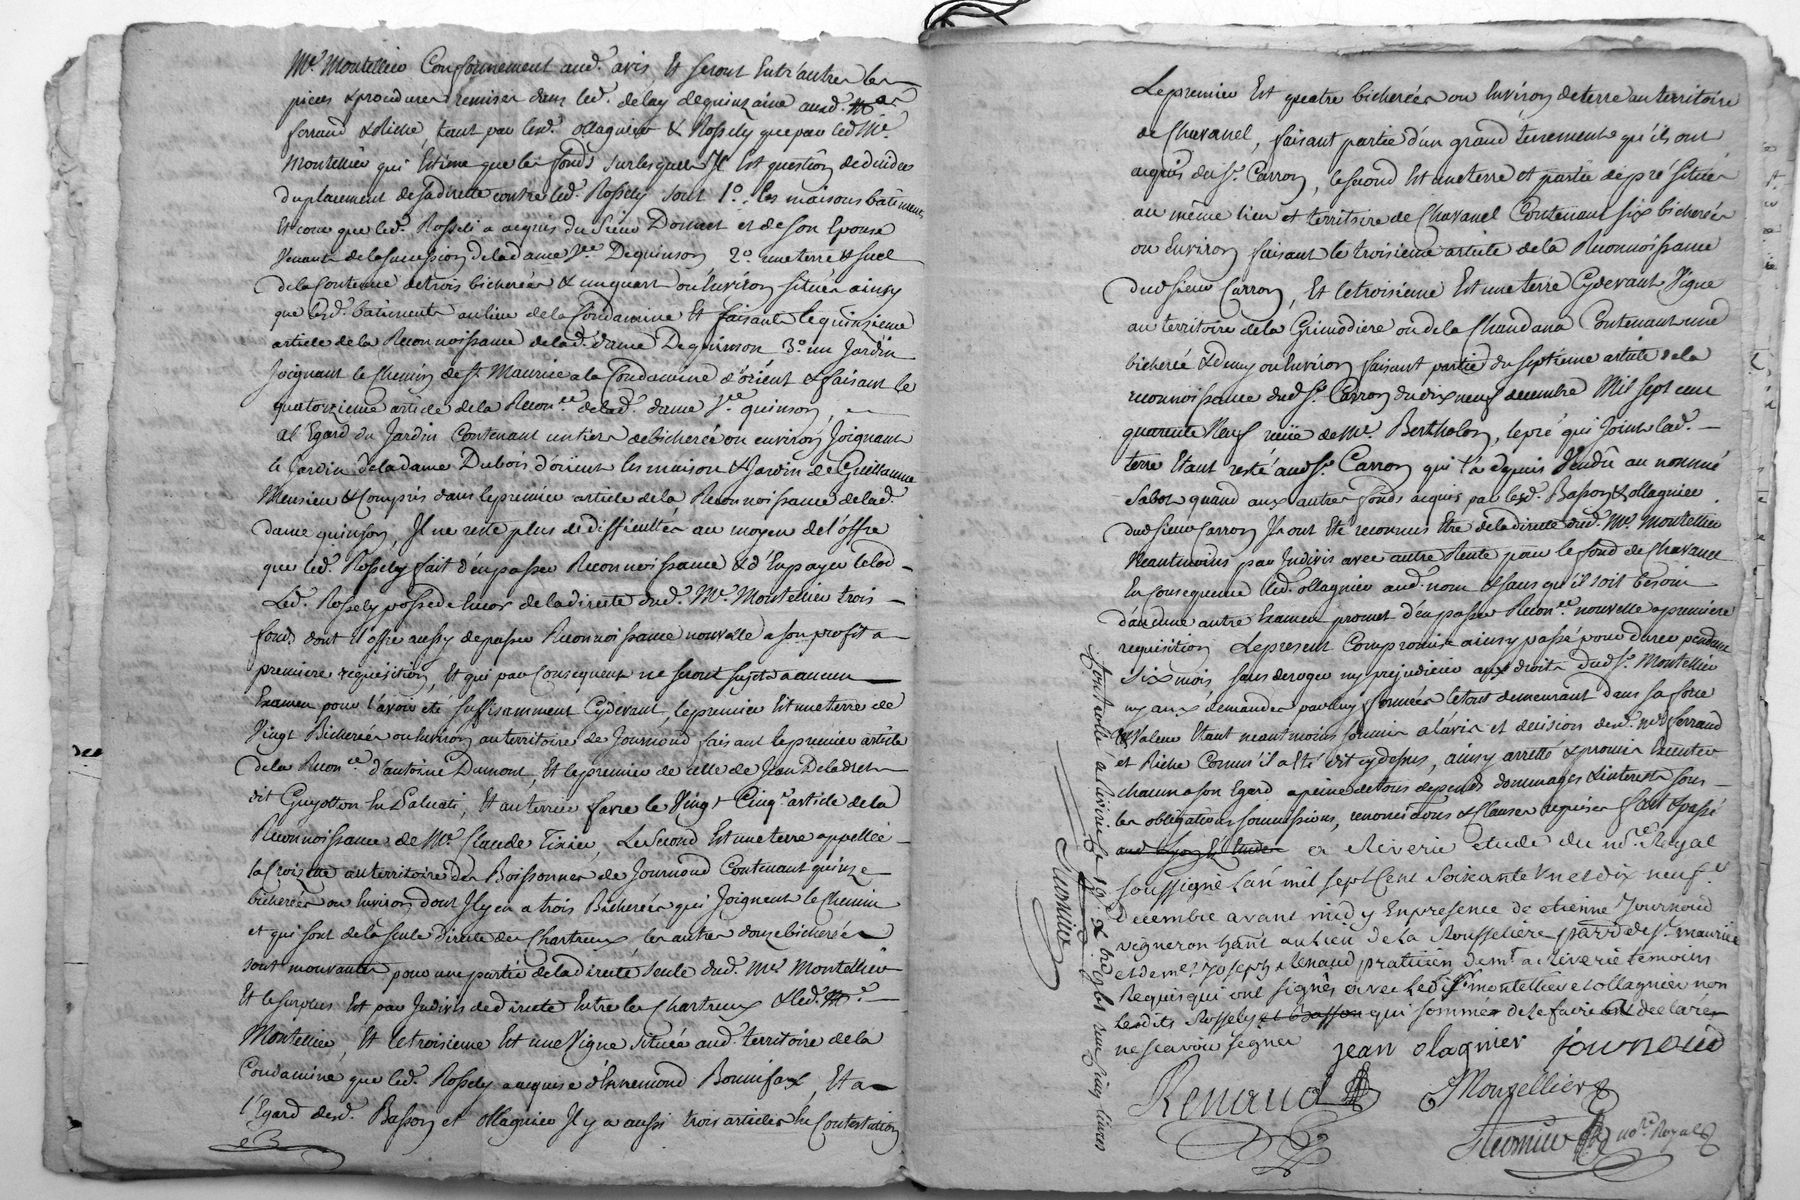 Me. Montellier Conformement aud. avis, Et seront Entr'autres les
pieces & procedures remises dans led. delay de quinzaine ausd. Mes
ferraud & Riche, tant par lesd. ollagnier & Rossely que par led. Me.
Montellier qui Estime que les fonds sur lesquels Il Est question de
du placement de sa directe contre led. Rossely sont 1o. les maisons bâtiments
Et cour que led. Rosseli a acquis du Sieur Donnet et de son Epouse
Venants de la succession de la dame Ve. Dequinson 2o. une terre & suel
de la Contenue de trois bicherées & un quart ou Environ situés ainsy
que lesd. bâtiments au lieu de la Condamine Et faisants le quinzieme
article de la Reconnoissance de lad. dame Dequinson 3o. un Jardin
Joignant le Chemin de St. Maurice a la Condamine d'orient & faisant le
quatorzieme article de la Reconce. de lad. dame Ve. quinson,
al Egard du Jardin Contenant un tiers de bicherée ou environ Joignant
le Jardin de la dame Dubois d'orient les maison & Jardin de Guillaume
Mensieu & Compris dans le premier article de la Reconnoissance de lad.
dame quinson, Il ne reste plus de difficultés au moyen de l'offre
que led. Rossely fait d'en passer Reconnoissance & d'En payer le lod
Led. Rossely possede Encor de la directe dud. Me. Montellier trois
fonds dont il offre aussy de passer Reconnoissance nouvelle a son profit a
premiere requisition, Et qui par Consequent ne seront sujets a aucun
Examen pour l'avoir été suffisamment Cydevant, le premier Est une terre de
Vingt Bicherées ou Environ au territoire de Journoud faisant le premier article
de la Reconce. d'antoine Dumont, Et le premier de celle de Jean Deladret
dit Guyotton En Laluati, Et au terrier favre le Vingt Cinqe. article de la
Reconnoissance de Me. Claude Tixier, Le Second Est une terre appellée
la Croisette au territoire des Boissonnes de Journoud Contenant quinze
bicherées ou Environ dont Il y en a trois Bicherées qui Joignent le Chemin
et qui sont de la seule directe des Chartreux les autres douze bicherées
sont mouvantes pour une partie de la directe seule dud. Me. Montellier
Et le surplus Est par Indivis de directe Entre les Chartreux & led. Me.
Montellier, Et le troisieme Est une Vigne située aud. territoire de la
Condamine que led. Rossely a acquise d'Ennemond Bonnifax, Et a
l'Egard desd. Basson et ollagnier Il y a aussi trois articles En Contestation
Le premier Est quatre bicherées ou Environ de terre au territoire
de Chavanel, faisant partie d'un grand tenement qu'ils ont
acquis du Sr. Carron, le second Est une terre et partie de pré située
au même lieu et territoire de Chavanel Contenant six bicherées
ou Environ faisant le troisieme article de la Reconnoissance
dud. Sieur Carron, Et le troisieme Est une terre Cydevant Vigne
au territoire de la Grimodiere ou de la Chandana Contenant une
bicherée & demy ou Environ faisant partie du septieme article de la
reconnoissance dud. Sr. Carron du dix neuf decembre Mil sept cent
quarente Neuf reçue de Me. Bertholon, le pré qui Joint lad.
terre Etant resté aud. Sr. Carron qui l'a depuis Vendu au nommé
Sabot quand aux autres fonds acquis par lesd. Basson & ollagnier
dud. Sieur Carron Ils ont Eté reconnus Etre de la directe dud. Me. Montellier
Neantmoins par Indivis avec autre Rente pour le fond de Chavanel
En consequence led. ollagnier aud. nom & sans qu'il soit besoin
d'aucune autre Examen promet d'en passer Reconce. nouvelle a premiere
requisition Le present Compromis ainsy passé pour durer pendant
Six mois, sans deroger ny prejudicier aux droits dud. Sr. Montellier
ny aux demandes par luy formées le tout demeurant dans sa force
& Valeur Etant neantmoins soumis a l'avis et decision desd. Mes. ferraud
et Riche Comme il a Eté dit cydessus, ainsy arretté & promis Executer
chacun a son Egard a peine de tous depends dommages & interests sous
les obligations soumissions, renonciations & Clauses requises fait & passé
aud. Lyon Et Etude a Riverie etude du nre. Royal
soussigné L'an mil sept Cent soixante un et dix neufe.
Decembre avant midy En presence de etienne Journoud
vigneron habit. au lieu de la Rousseliere parr. de St. maurice
et de me. Joseph Renaud praticien demt. a riverie temoins
Requis qui ont signés avec Ledit Sr. montellier et ollagnier non
Lesdits Rossely et Basson qui sommés de le faire ont declarés
ne scavoir signer jean olagnier journoud
Renaud Montellier
Fleurnier nore. Royal
Controllé a Riverie le 19. Xbre 1761 reçu cinq livres
Fleurnier